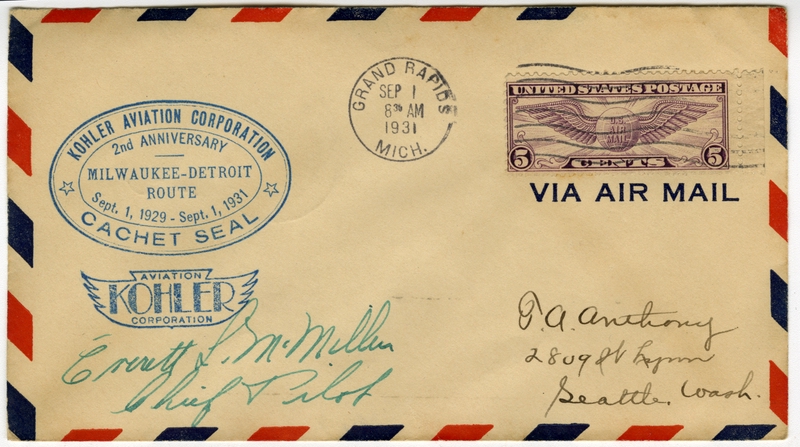 KOHLER AVIATION CORPORATION
2nd ANNIVERSARY
MILWAUKEE-DETROIT
ROUTE
Sept. 1, 1929 - Sept. 1, 1931
CACHET SEAL
AVIATION
KOHLER
CORPORATION
Everett L. McMillen
Chief Pilot
GRAND RAPIDS
SEP 1
8 30 AM
1931
MICH.
UNITED STATES POSTAGE
U.S.
AIR
MAIL
5 CENTS 5
VIA AIR MAIL
Anthony
Seattle. Wash.